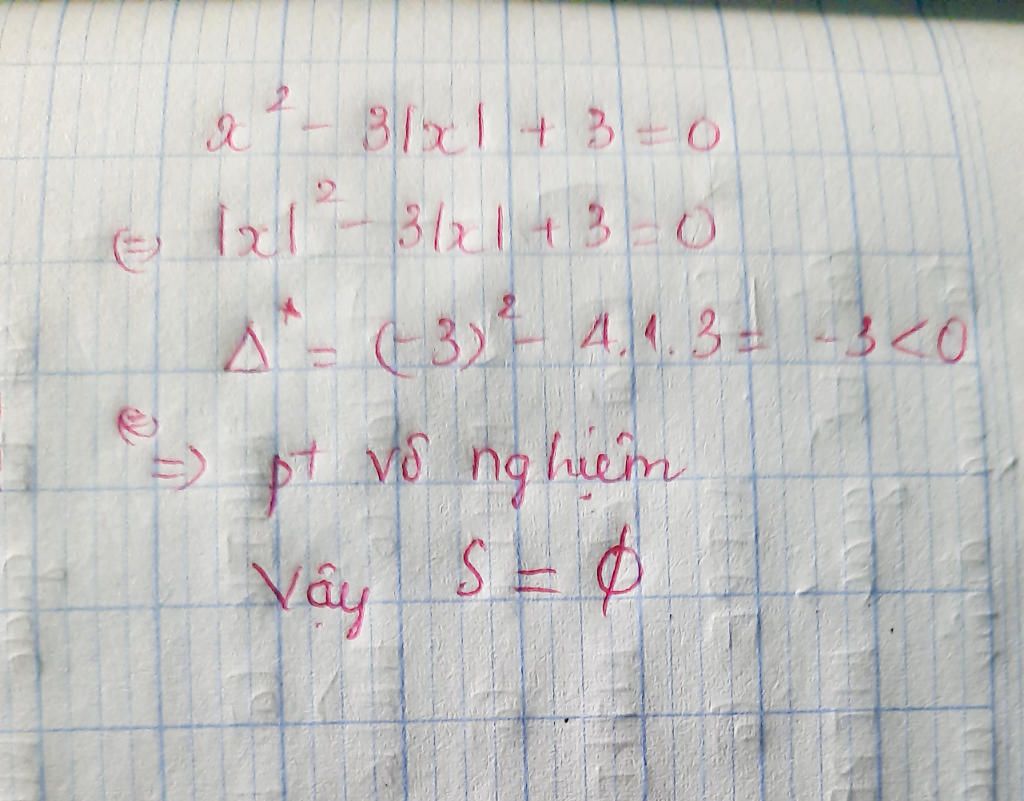 x² - 3|x| + 3 = 0
(=) |x|² - 3|x| + 3 = 0
Δ* = (-3)² - 4.1.3 = -3 < 0
=) pt vô nghiệm
Vậy S = ϕ